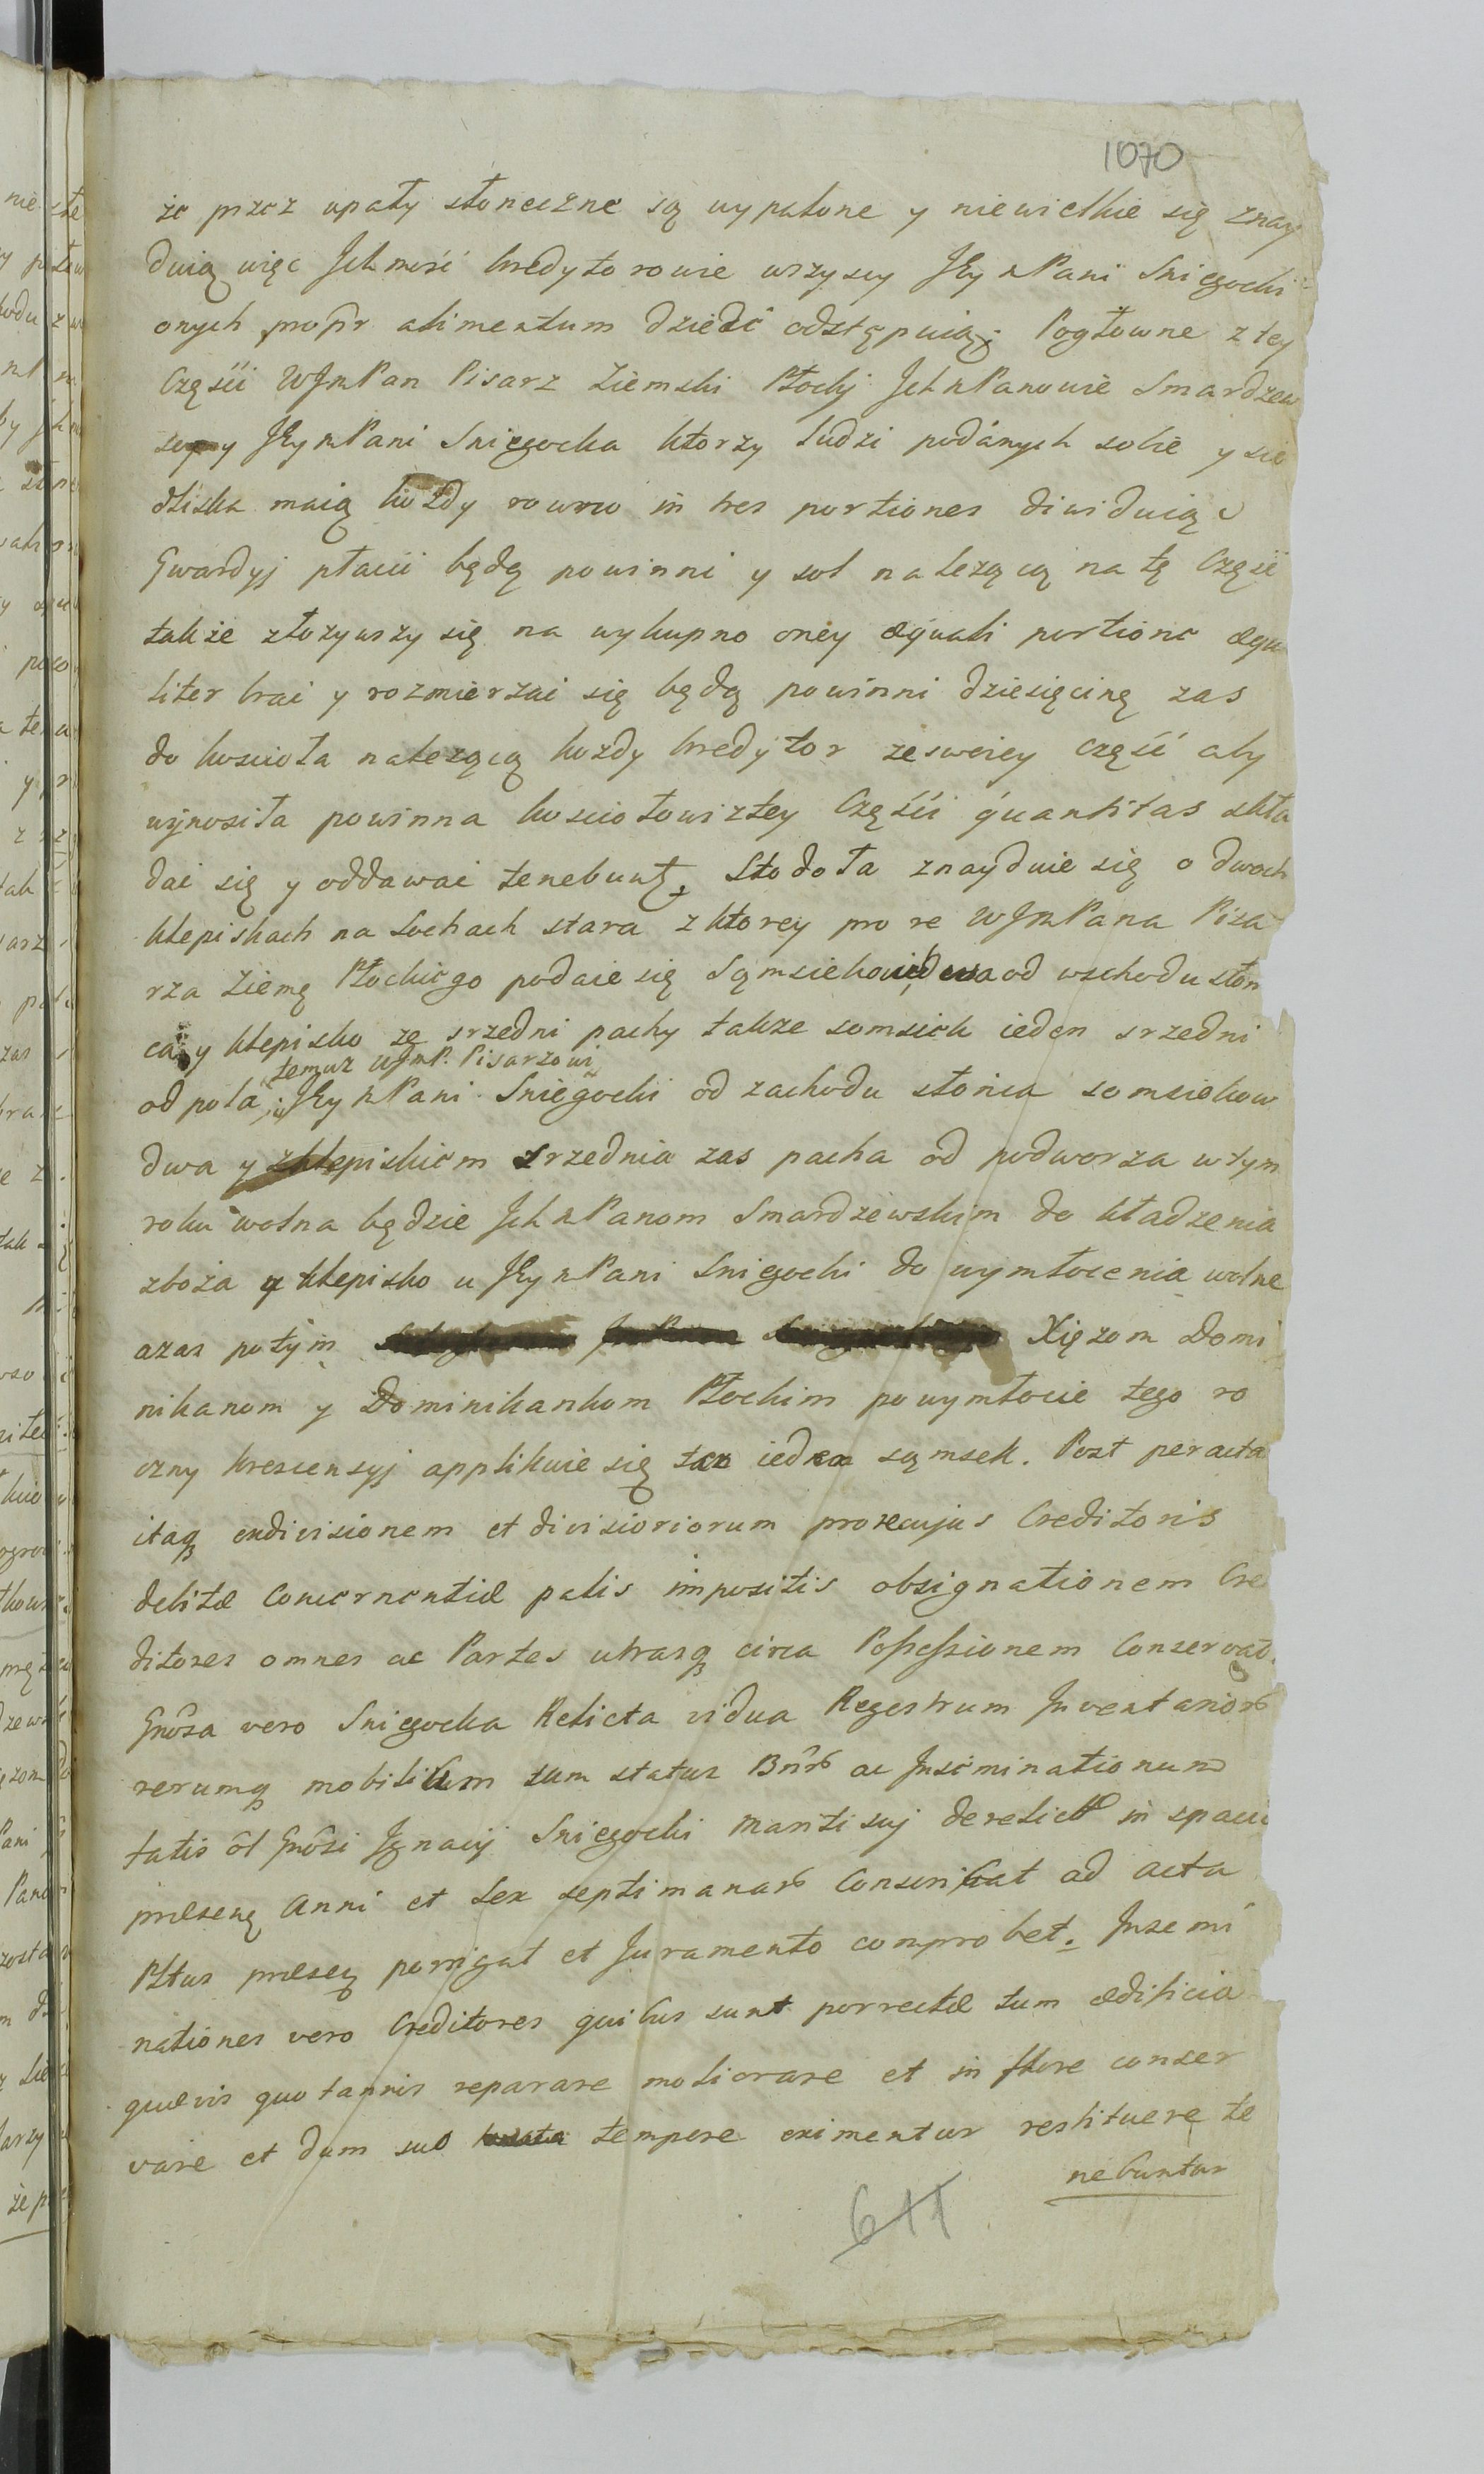 1070
że przez upały słoneczne są wypalone y niewielkie się znay
duią więc Ichmość kredytorowie wszyscy JEymPani Sniegocki
onych propr alimentum dzieći odstępuią; Pogłowne z tey
Częśći WJmPan Pisarz Ziemski Płocky IchmPanowie Smardzew
scy y JEymPani Sniegocka ktorzy ludzi podánych sobie y sie
dliska maią kożdy rowno in tres portiones diwiduiąc
Gwardyj płacić będą powinni y sol nalezącą na tę Część
także złozywszy się na wykupno oney æquali portione æqua
liter brać y rozmierzać się będą powinni dziesięcinę zas
do kościoła nalezącą kozdy kredytor ze swoiey częśći aby
wynosiła powinna kościołowi z tey Częśći quantitas skła
dać się y oddawać tenebunt. Stodoła znayduie się o dwoch
klepiskach na Sochach stara z ktorey pro re WJmPana Pisa
rza Ziemę Płockiego podaie się Sąmsiekow dwa od wschodu słon
ca y klepisko ze srzedni pachy takze somsiek ieden srzedni
temuz WJmP. Pisarzowi
od pola; JEymPani Sniegocki od zachodu słońca somsiekow
dwa y zklepiskiem srzednia zas pacha od podworza w tym
roku wolna będzie IchmPanom Smardzewskim do kładzenia
zboża y klepisko u JEymPani Sniegocki do wymłocenia wolne
a zas potym Xięzom Domi
nikanom y Dominikankom Płockim po wymłocie tego ro
czny krescensyj applikuie się ieden sąmsek. Post peracta
itaq exdivisionem et divisioriorum pro re cujus Creditoris
debitæ concernentiæ palis impositis obsignationem Cre
ditores omnes ac Partes utrasq circa Possessionem Conservat.
Gnosa vero Sniegocka Relicta vidua Regestrum Inventarior
rerumq mobilium tum status Bnor ac Inseminationum
tatis ol Gnosi Ignacij Sniegocki mariti suj derelict in spacio
præsenę Anni et Sex septimanar Conscribat ad acta
Pltus præsenę porrigat et Juramento comprobet. Insemi
nationes vero Creditores quibus sunt porrectæ tum ædificia
quævis quotannis reparare meliorare et in flore conser
vare et dum suo tempore eximentur restituere te
nebuntur
611